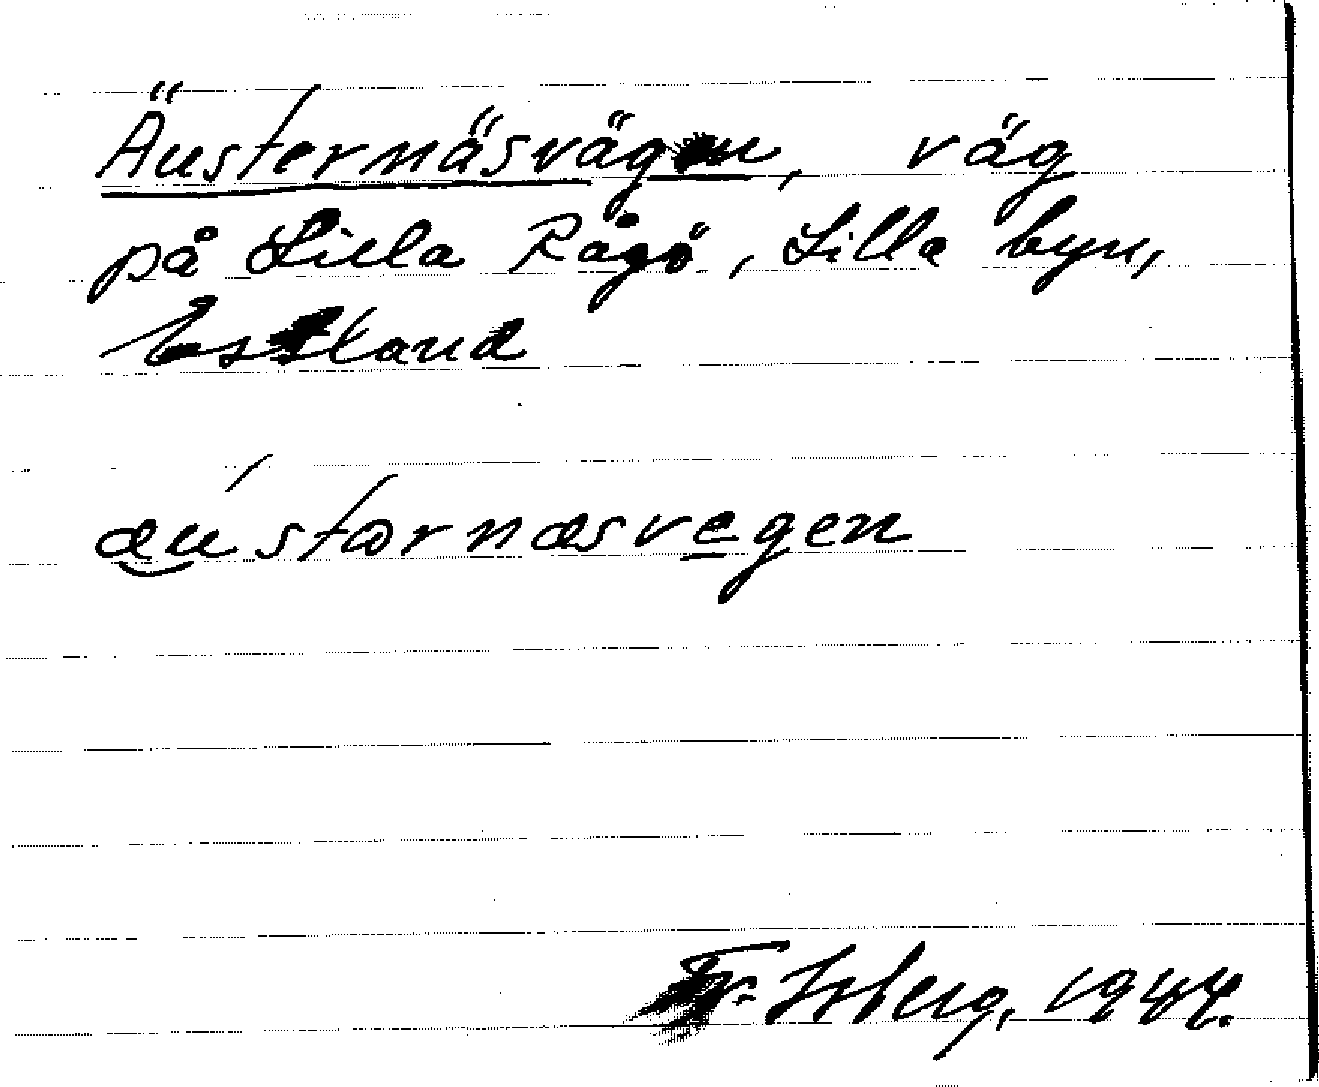 Äusternäsvägen, väg
på Lilla Rågö, Lilla byn,
Estland
æu´stərnæsvegen
Fr. Isberg, 1944.